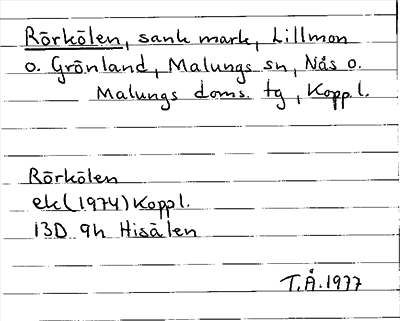 Rörkölen, sank mark, Lillmon
o. Grönland, Malungs sn, Nås o.
Malungs doms. tg, Koppl.
Rörkölen
ek (1974) Koppl.
13D 9h Hisälen
T.Å. 1977